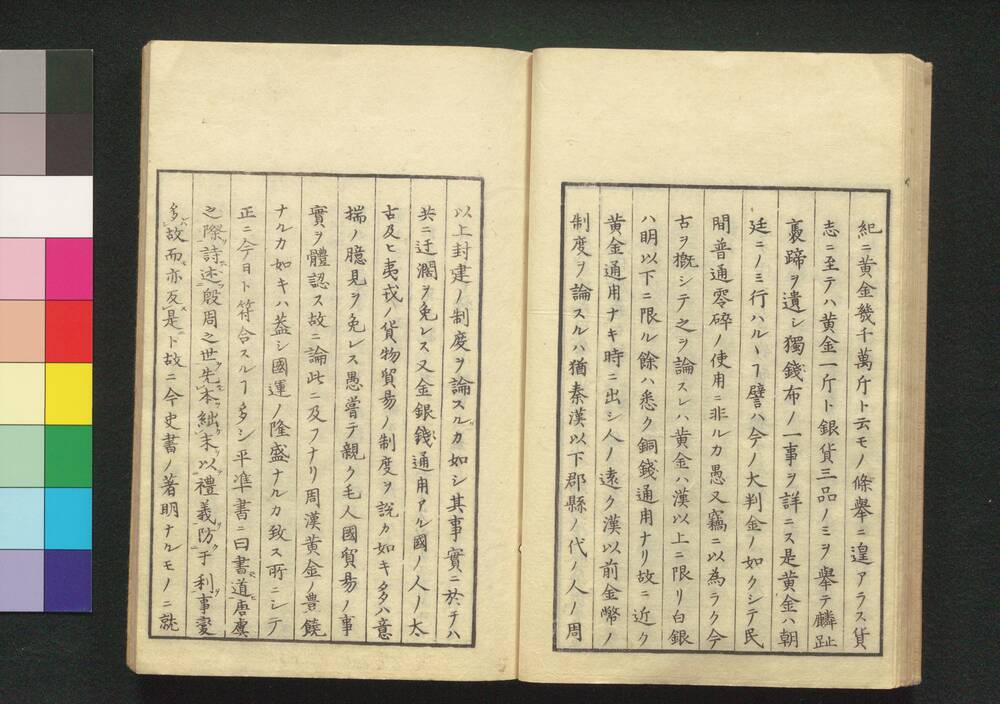 紀ニ黄金幾千萬斤ト云モノ條舉ニ遑アラス貨
志ニ至テハ黄金一斤ト銀貨三品ノミヲ舉テ麟趾
褭蹄ヲ遺シ獨錢布ノ一事ヲ詳ニス是黄金ハ朝
廷ニノミ行ハルヽヿ譬ハ今ノ大判金ノ如クシテ民
間普通零碎ノ使用ニ非ルカ愚又竊ニ以為ラク今
古ヲ概シテ之ヲ論スレハ黄金ハ漢以上ニ限リ白銀
ハ明以下ニ限ル餘ハ悉ク銅錢通用ナリ故ニ近ク
黄金通用ナキ時ニ出シ人ノ遠ク漢以前金幣ノ
制度ヲ論スルハ猶秦漢以下郡縣ノ代ノ人ノ周
以上封建ノ制度ヲ論スルカ如シ其事實ニ於テハ
共ニ迂濶ヲ免レス又金銀錢通用アル國ノ人ノ太
古及ヒ夷戎ノ貨物貿易ノ制度ヲ説カ如キ多ハ意
揣ノ臆見ヲ免レス愚嘗テ親ク毛人國貿易ノ事
實ヲ體認ス故ニ論此ニ及フナリ周漢黄金ノ豊饒
ナルカ如キハ蓋シ國運ノ隆盛ナルカ致ス所ニシテ
正ニ今日ト符合スルヿ多シ平準書ニ曰書道唐虞
之際詩述殷周之世先本絀末以禮義防于利事變
多故而亦反是ト故ニ今史書ノ著明ナルモノニ就